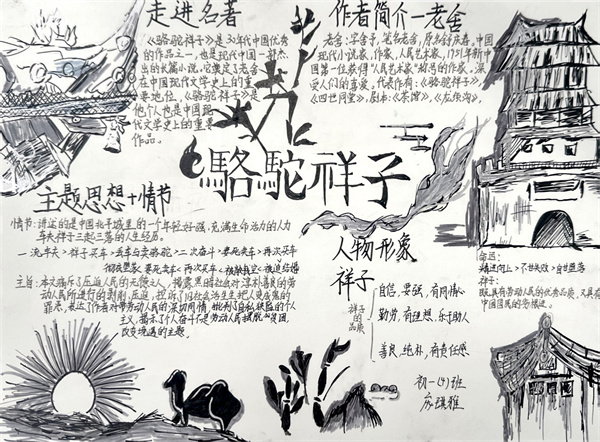 走进名著
《骆驼祥子》是30年代中国优秀
的作品之一,也是现代中国一部杰
出的长篇小说,它奠定了老舍
在中国现代文学史上的重
要地位,《骆驼祥子》是
他个人也是中国现
代文学史上的重要
作品。
作者简介—老舍
老舍:字舍予,笔名老舍,原名舒庆春。中国
现代小说家,作家,人民艺术家,1951年新中
国第一位获得"人民艺术家"称号的作家,深
受人们的喜爱,代表作有:《骆驼祥子》,
《四世同堂》,剧本:《茶馆》,《龙须沟》。
駱駝祥子
主题思想+情节
情节:讲述的是中国北平城里的一个年轻好强,充满生命活力的人力
车夫祥子三起三落的人生经历。
一
主旨:
罪恶,表达了作者对劳动人民的深切同情,批判了自私狭隘的个人
主义,揭示了个人奋斗不是劳动人民摆脱
改变境遇的主题。
人物形象
祥子
祥子
的
品质
自信,要强,有同情心
勤劳,有理想,乐于助人
善良,纯朴,有责任感
命运:
精进向上>不甘失败>自甘堕落
祥子:
既具有劳动人民的优秀品质,不具有
中国国民的劣根性。
初一(4)班